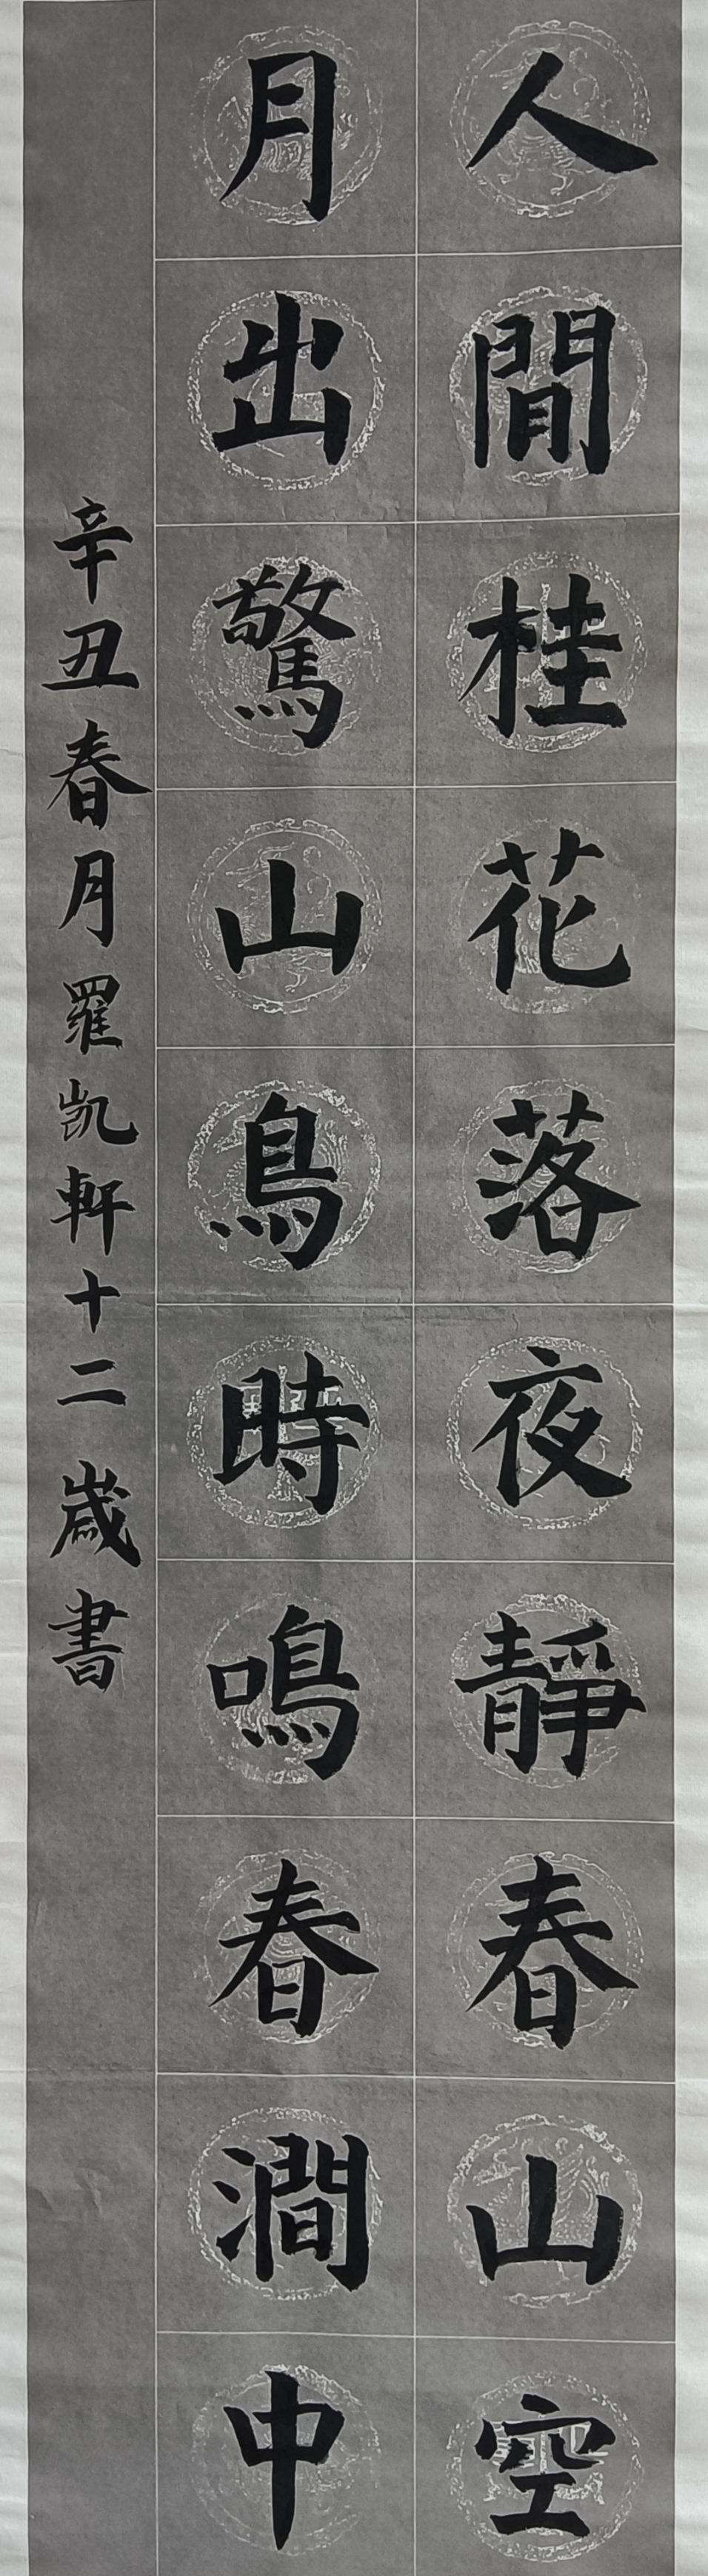 人間桂花落夜靜春山空
月出驚山鳥時鳴春澗中
辛丑春月羅凱軒十二歲書